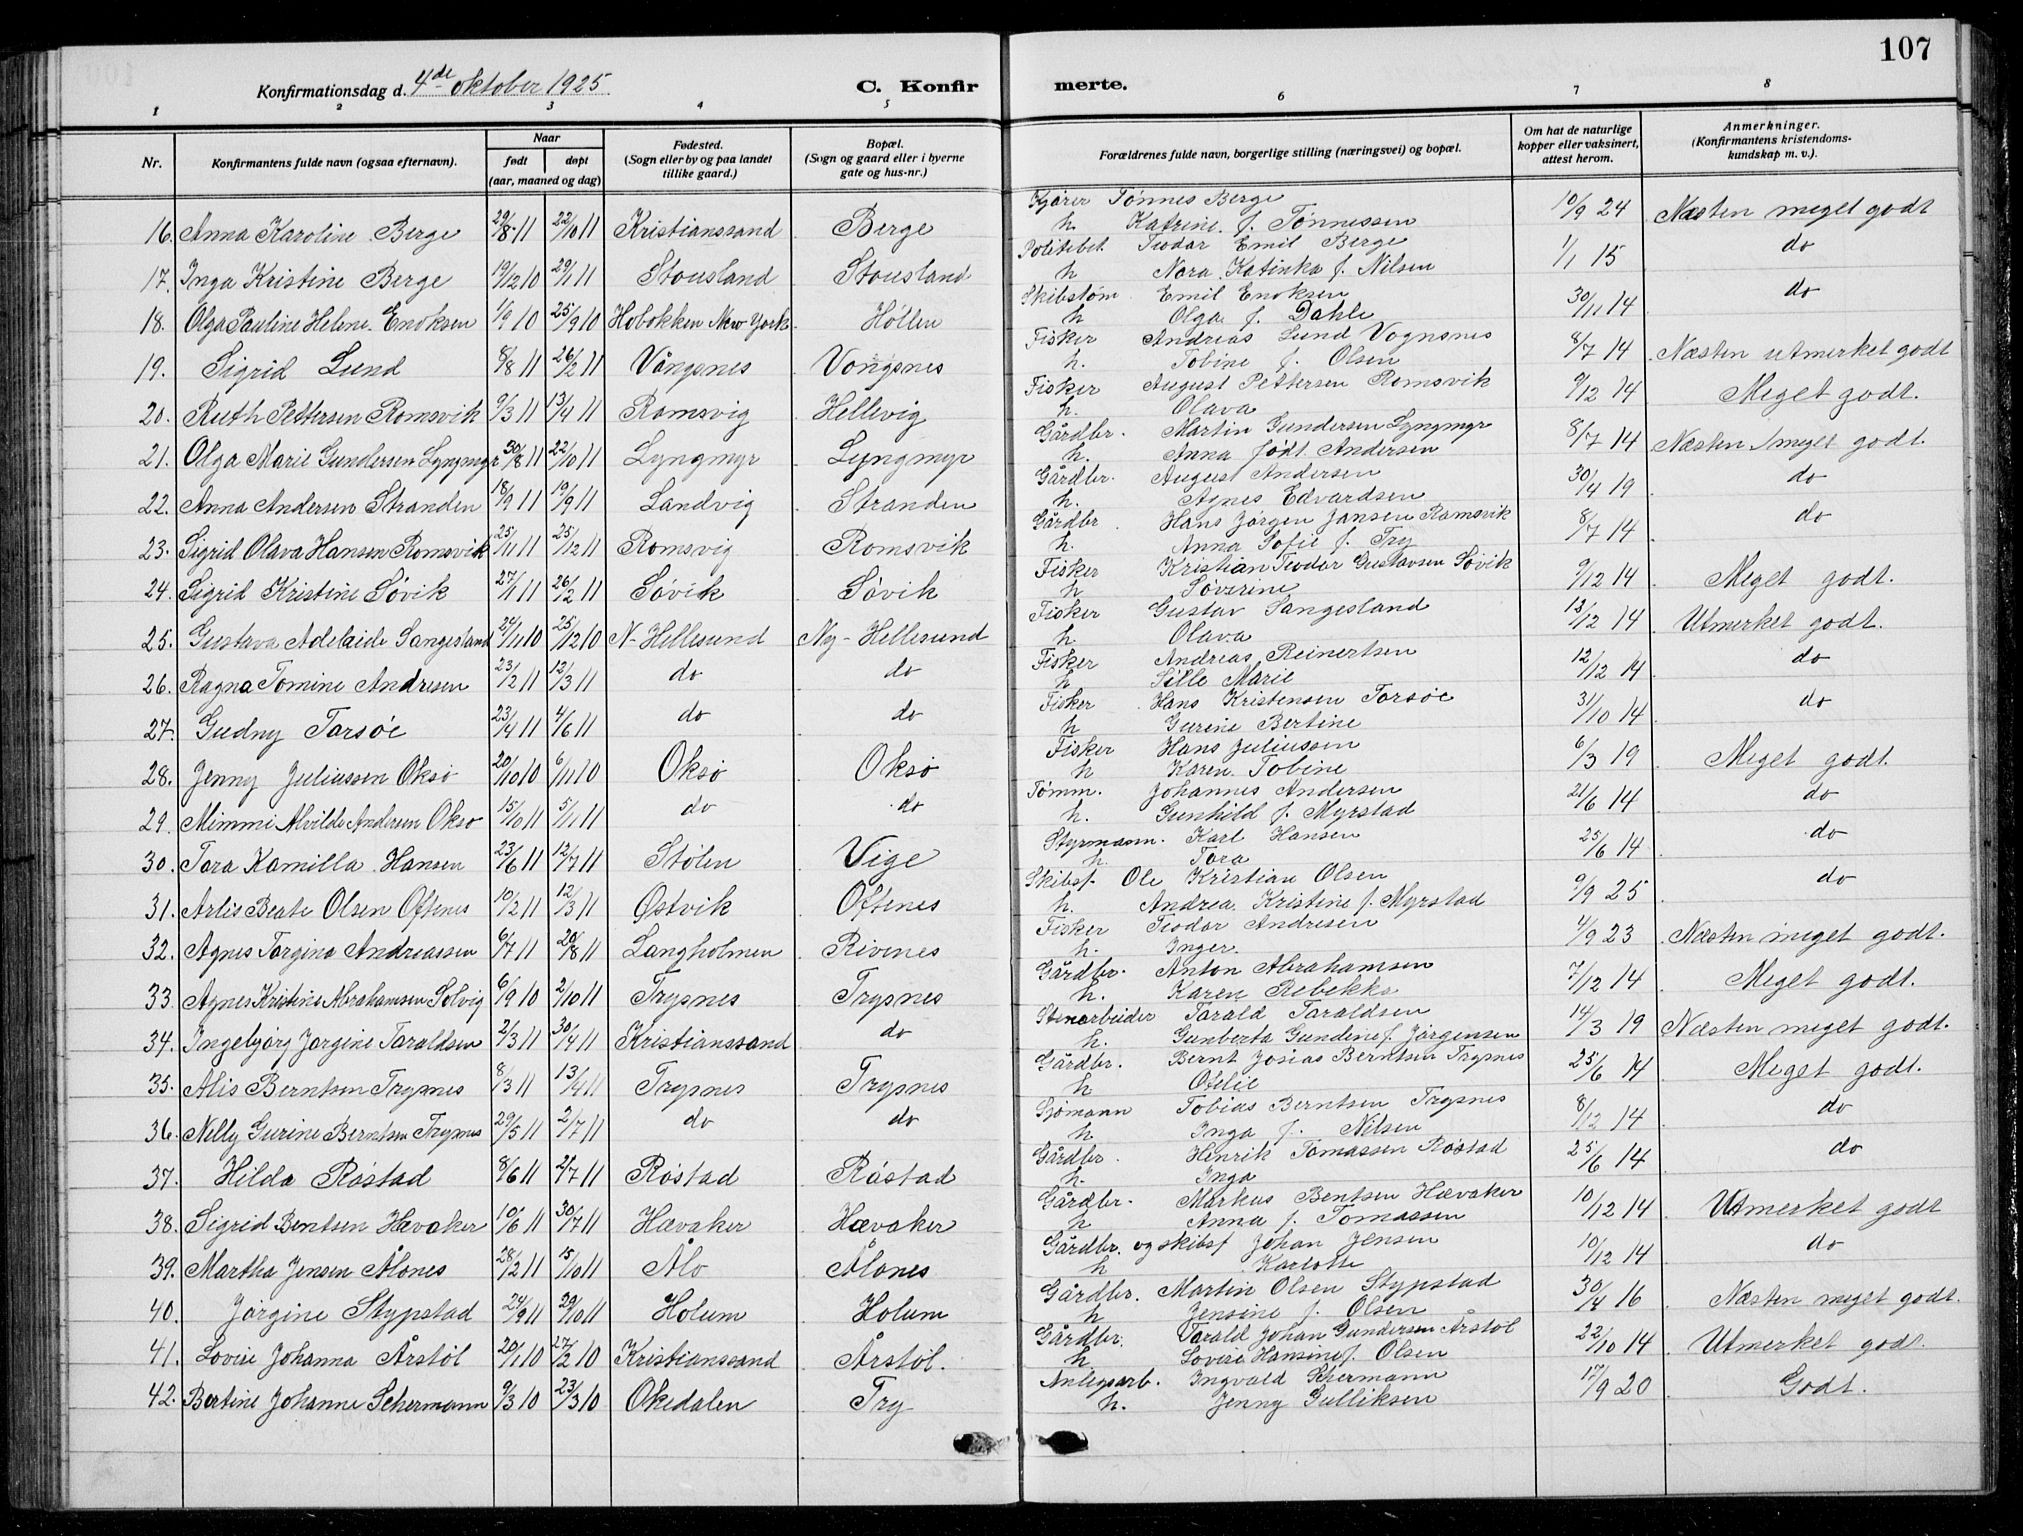 107
Konfirmationsdag d. 4de oktober 1925 C. Konfir merte.
1 2 3 4 5 6 7 8
Nr. Konfirmantens fulde navn (ogsaa efternavn). Naar født døpt (aar, maaned og dag) Fødested. (Sogn eller by og paa landet tillike gaard.) Bopæl. (Sogn og gaard eller i byerne gate og hus-nr.) Forældrenes fulde navn, borgerlige stilling (næringsvei) og bopæl. Om hat de naturlige kopper eller vaksinert, attest herom. Anmerkninger. (Konfirmantens kristendoms-kundskap m. v.).
16. Anna Karoline Berge 29/8 11 22/10 11 Kristianssand Berge Kjører Tønnes Berge 10/9 24 Næsten meget godt
h. Katrine f. Tønnessen
17. Inga Kristine Berge 19/12 10 29/1 11 Stousland Stousland Politibet. Teodor Emil Berge 1/1 15 do
h Nora Katinka f. Nilsen
18. Olga Pauline Helene Enoksen 1/9 10 25/9 10 Hobokken New York Høllen Skibstøm. Emil Enoksen 30/11 14 do
h Olga f. Dahle
19. Sigrid Lund 8/8 11 26/2 11 Vångsnes Vongsnes Fisker Andreas Lund Vognsnes 8/7 14 Næsten utmerket godt
h. Tobine f. Olsen
20. Ruth Pettersen Romsvik 9/3 11 13/4 11 Romsvig Hellevig Fisker August Pettersen Romsvik 9/12 14 Meget godt.
h. Olava
21. Olga Marie Gundersen Lyngmyr 30/8 11 22/10 11 Lyngmyr Lyngmyr Gårdbr. Martin Gundersen Lyngmyr 8/7 14 Næsten meget godt.
h. Anna født Andersen
22. Anna Andersen Stranden 18/9 11 19/9 11 Landvig Stranden Gårdbr. August Andersen 30/4 19 do
h. Agnes Edvardsen
23. Sigrid Olava Hansen Romsvik 25/11 11 25/12 11 Romsvig Romsvik Gårdbr. Hans Jørgen Jansen Romsvik 8/7 14 do
h. Anna Sofie f. Try
24. Sigrid Kristine Søvik 27/1 11 26/2 11 Søvik Søvik Fisker Kristian Teodor Gustavsen Søvik 9/12 14 Meget godt.
h Søverine
25. Gustava Adelaide Sangesland 24/11 10 25/12 10 N-Hellesund Ny-Hellesund Fisker Gustav Sangesland 13/12 14 Utmerket godt.
h. Olava
26. Ragna Tomine Andresen 23/2 11 12/3 11 do do Fisker Andreas Reinertsen 12/12 14 do
h Sille Marie
27. Gudny Tarsøe 23/4 11 4/6 11 do do Fisker Hans Kristensen Tarsøe 31/10 14 do
h Gurine Bertine
28. Jenny Juliussen Oksø 20/10 10 6/11 10 Oksø Oksø Fisker Hans Juliussen 6/3 19 Meget godt.
h Karen Tobine
29. Mimmi Alvilde Andersen Oksø 15/10 11 5/11 11 do do Tømm. Johannes Andersen 21/6 14 do
h. Gunhild f. Myrstad
30. Tora Kamilla Hansen 23/6 11 12/7 11 Stølen Vige Styrmann. Karl Hansen 25/6 14 do
h. Tora
31. Arlis Beate Olsen Oftenes 10/2 11 12/3 11 Østvik Oftenes Skibsf. Ole Kristian Olsen 9/9 25 do
h. Andrea Kristine f. Myrstad
32. Agnes Torgine Andreassen 6/7 11 20/8 11 Langholmen Rivenes Fisker Teodor Andresen 4/9 23 Næsten meget godt.
h. Inger.
33. Agnes Kristine Abrahamsen Solvig 6/9 10 2/10 11 Trysnes Trysnes Gårdbr. Anton Abrahamsen 7/12 14 Meget godt.
h. Karen Rebekka
34. Ingebjørg Jørgine Taraldsen 2/3 11 30/4 11 Kristianssand do Stenarbeider Tarald Taraldsen 14/3 19 Næsten meget godt.
h. Gunberta Gundine f. Jørgensen
35. Alis Berntsen Trysnes 8/3 11 13/4 11 Trysnes Trysnes Gårdbr. Bernt Josias Berntsen Trysnes 25/6 14 Meget godt.
h Ofelie
36. Nelly Gurine Berntsen Trysnes 29/5 11 2/7 11 do do Sjømann Tobias Berntsen Trysnes 8/12 14 do
h Inga f. Nilsen
37. Hilda Røstad 8/6 11 2/7 11 Røstad Røstad Gårdbr. Henrik Tomassen Røstad 25/6 14 do
h. Inga
38. Sigrid Bentsen Hævaker 10/6 11 30/7 11 Hævaker Hævaker Gårdbr. Markus Bentsen Hævaker 10/12 14 Utmerket godt
h Anna f. Tomassen
39. Martha Jensen Ålones 28/2 11 15/10 11 Ålo Ålones Gårdbr. og skibsf Johan Jensen 10/12 14 do
h Karlotte
40. Jørgine Stypstad 24/9 11 29/10 11 Holum Holum Gårdbr. Martin Olsen Stypstad 30/4 16 Næsten meget godt.
h Jensine f. Olsen
41. Lovise Johanna Årstøl 20/1 10 27/2 10 Kristianssand Årstøl. Gårdbr. Tarald Johan Gundersen Årstøl 22/10 14 Utmerket godt.
h. Lovise Hansine f. Olsen
42. Bertine Johanne Schermann 9/3 10 23/3 10 Okedalen Try Anlegsarb. Ingvald Schermann 17/9 20 Godt.
h. Jenny Gulliksen